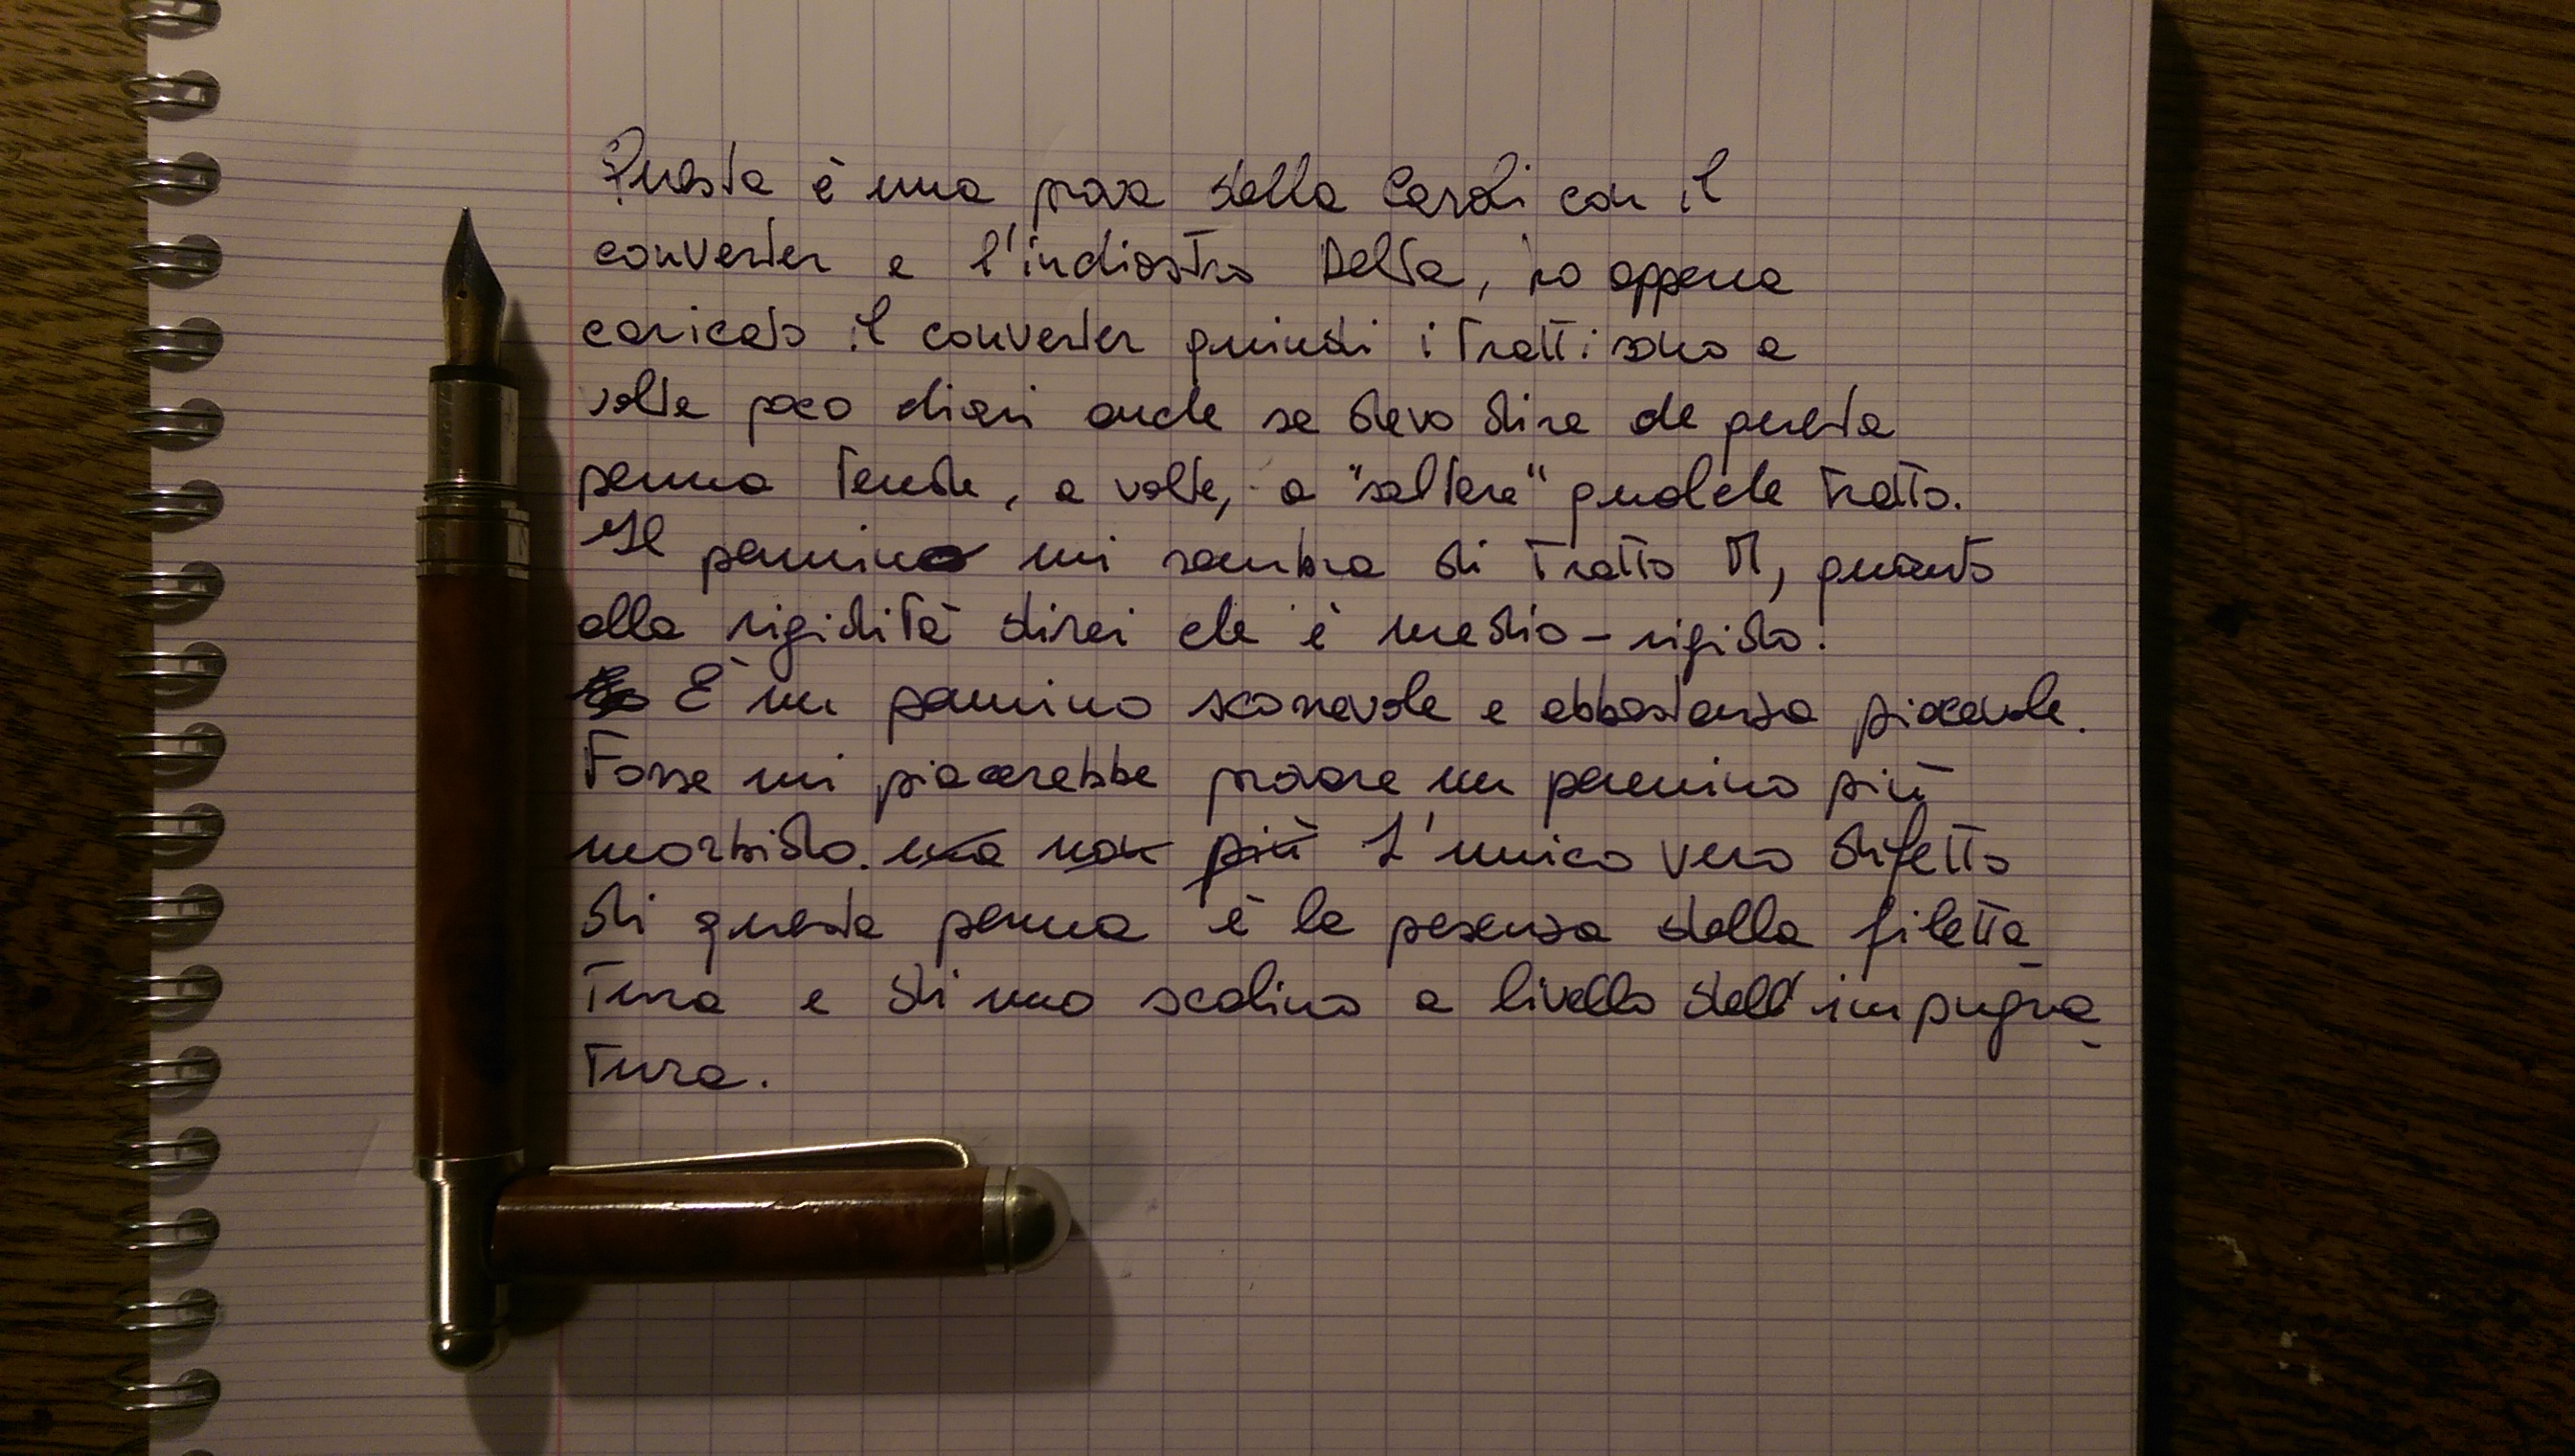 Questa è una prova della Caroli con il
converter e l'inchiostro Delta, ho appena
caricato il converter quindi i tratti sono a
volte poco chiari anche se devo dire che questa
penna tende, a volte, a "saltare" qualche tratto.
Il pennino mi sembra di tratto M, quanto
alla rigidità direi che è medio-rigido.
È un pennino scorrevole e abbastanza piacevole.
Forse mi piacerebbe provare un pennino più
morbido. ma non più L'unico vero difetto
di questa penna è la presenza della filetta
tura e di uno scalino a livello dell'impugna
tura.